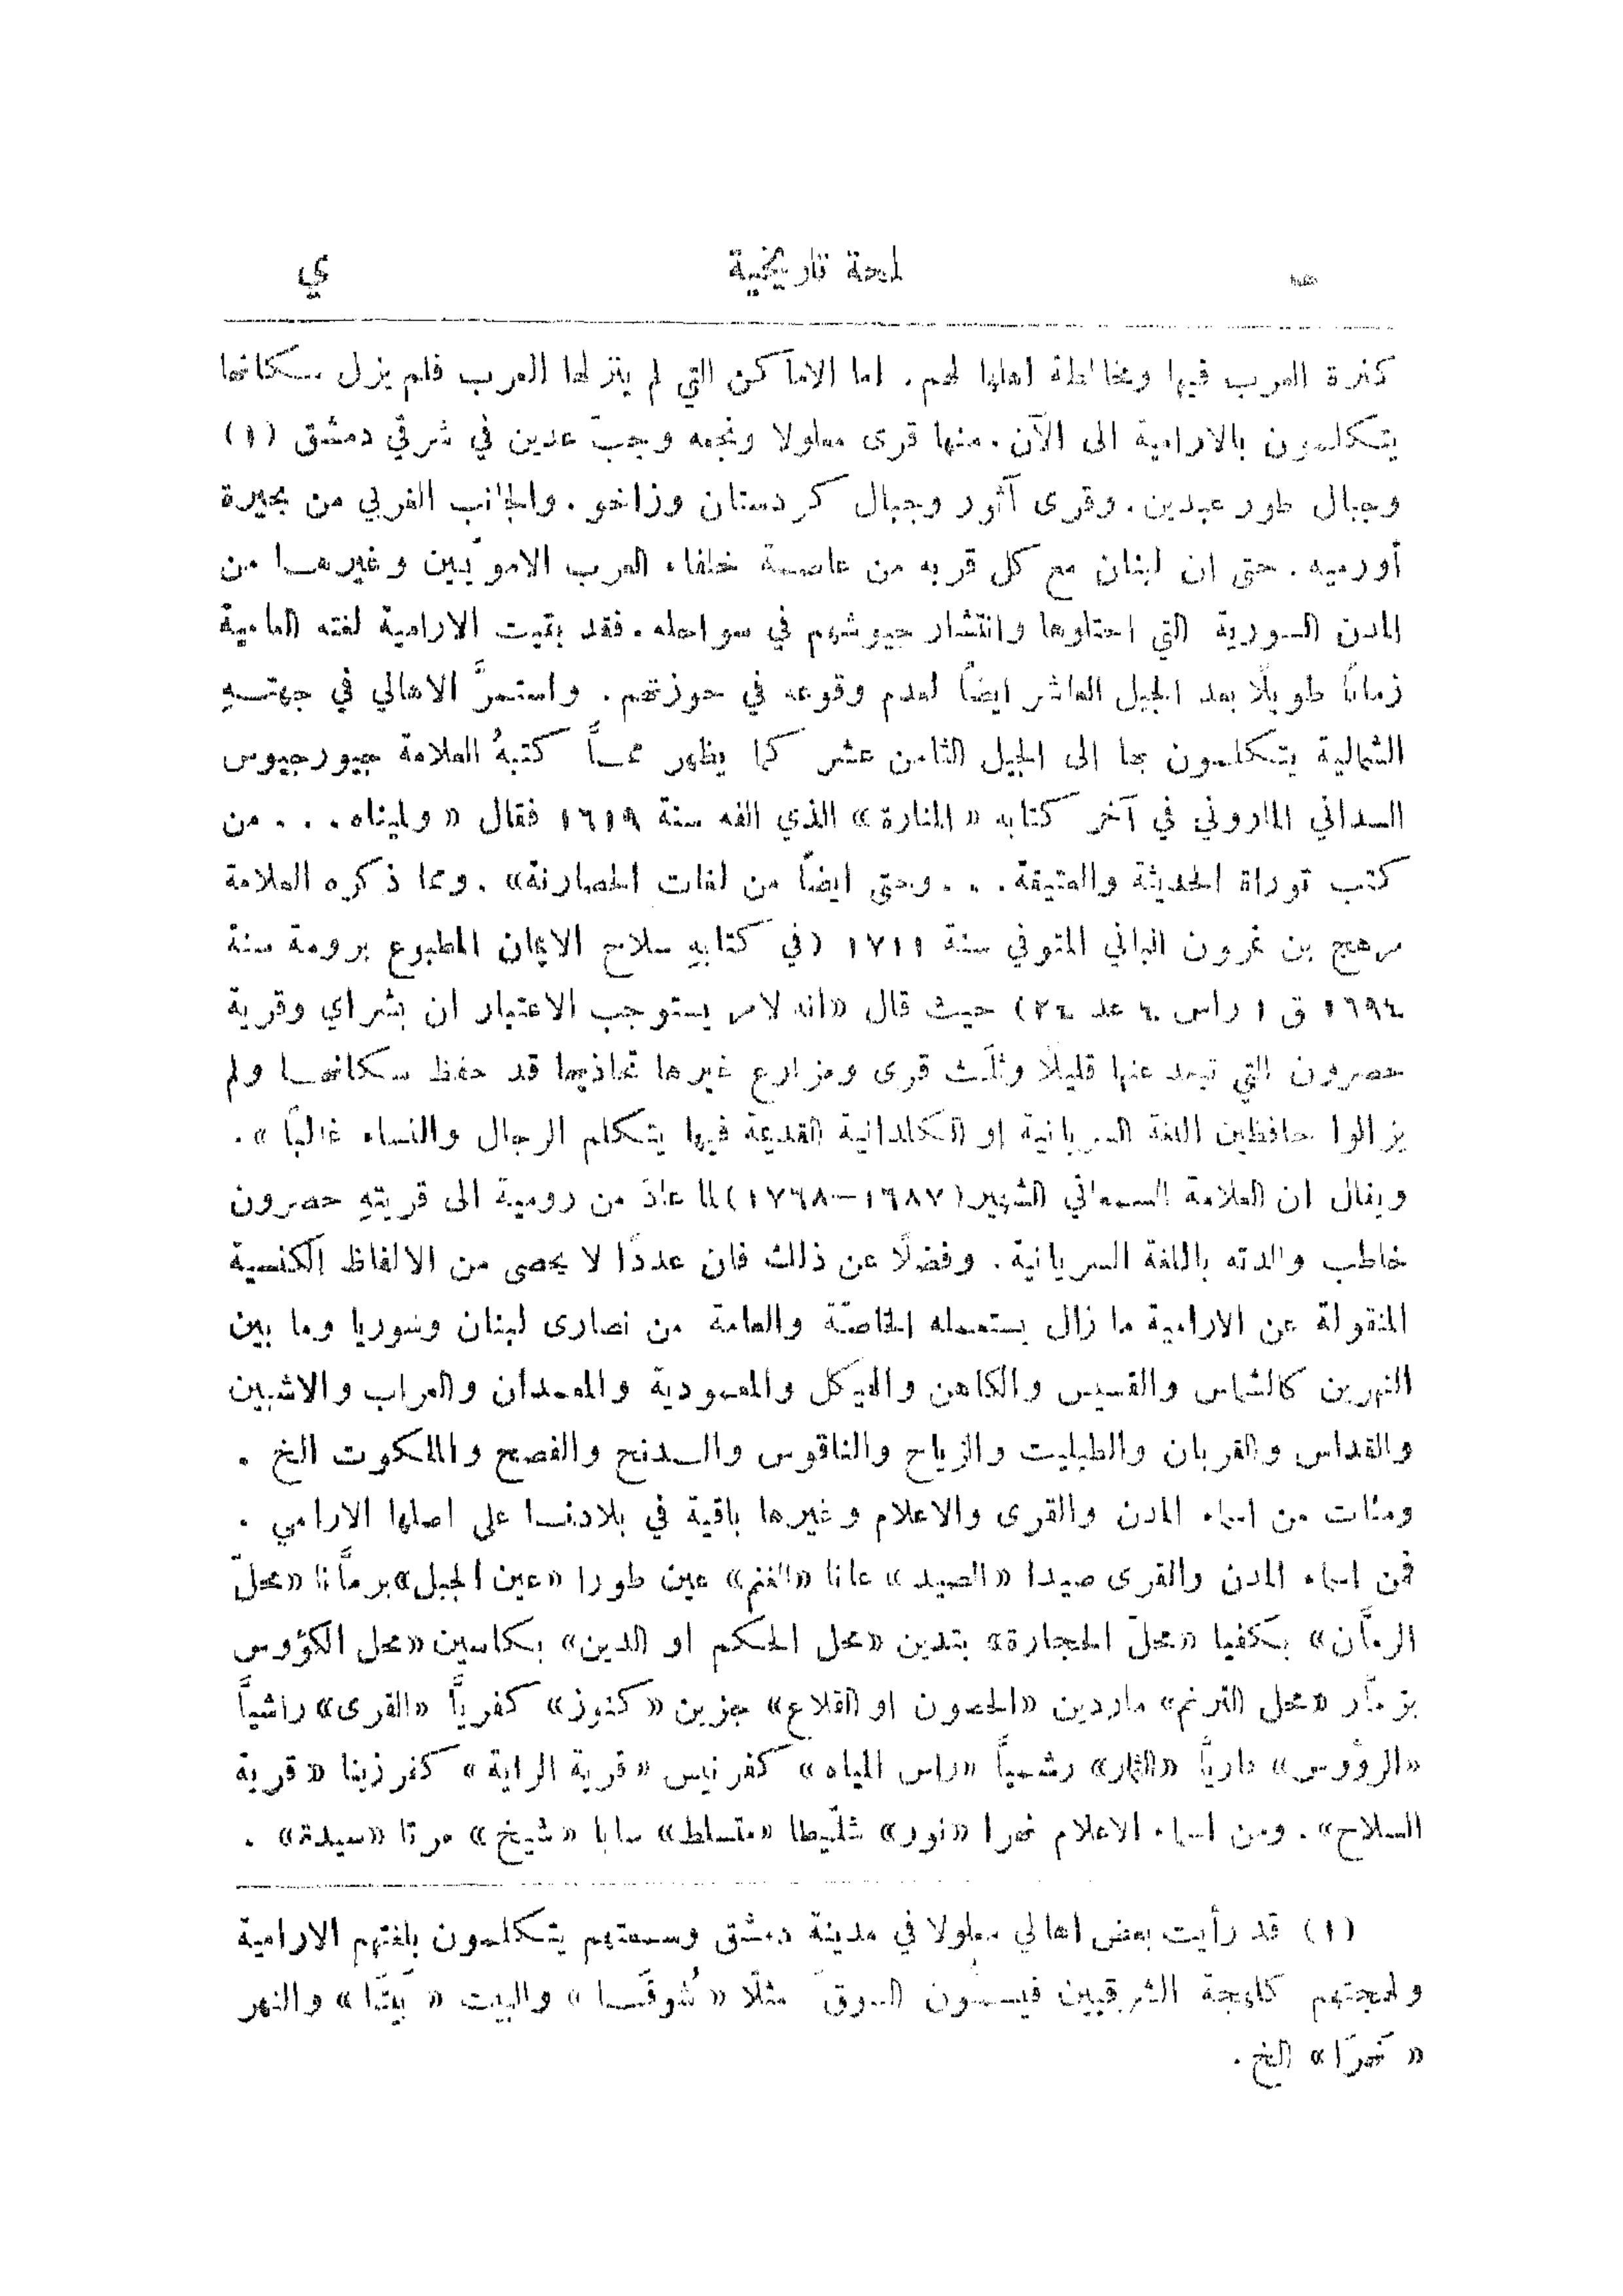 لمحة تاريخية
ي
كثرة العرب فيها ومخالطة اهلها لهم. اما الاماكن التي لم ينزلها العرب فلم يزل سكانها
يتكلمون بالارامية الى الآن. منها قرى معلولا ونجعه وجبّ عدين في شرقي دمشق (١)
وجبال طور عبدين. وقرى آثور وجبال كردستان وزاخو. والجانب الغربي من بحيرة
أورميه. حتى ان لبنان مع كل قربه من عاصمة خلفاء العرب الامويّين وغيرها من
المدن السورية التي احتلوها وانتشار جيوشهم في سواحله. فقد بقيت الارامية لغته العامية
زمانًا طويلًا بعد الجيل العاشر ايضًا لعدم وقوعه في حوزتهم. واستمرَّ الاهالي في جهتـهِ
الشمالية يتكلمون بها الى الجيل الثامن عشر كما يظهر ممـاَّ كتبهُ العلامة جيورجيوس
السداني الماروني في آخر كتابه «المنارة» الذي الفه سنة ١٦١٩ فقال «ولميناه... من
كتب توراة الحديثة والعتيقة... وحتى ايضًا من لغات الحصارنة». ومما ذكره العلامة
مرهج بن نمرون الباني المتوفي سنة ١٧١١ (في كتابهِ سلاح الايمان المطبوع برومة سنة
١٦٩٤ ق ١ راس ٦ عد ٢٤) حيث قال «انه لامر يستوجب الاعتبار ان بشراي وقرية
حصرون التي تبعد عنها قليلًا وثلث قرى ومزارع غيرها تحاذيها قد حفظ سكانهـا ولم
يزالوا حافظين اللغة السريانية او الكلدانية القديمة فيها يتكلم الرجال والنساء غالبًا».
ويقال ان العلامة السمعاني الشهير (١٦٨٧–١٧٦٨) لما عاد من رومية الى قريتهِ حصرون
خاطب والدته باللغة السريانية. وفضلًا عن ذلك فان عددًا لا يحصى من الالفاظ الكنسية
المنقولة عن الارامية ما زال يستعمله الخاصَّة والعامة من نصارى لبنان وسوريا وما بين
النهرين كالشماس والقسيس والكاهن والهيكل والمعمودية والمعمدان والعراب والاشبين
والقداس والقربان والطبليت والزياح والناقوس والـدنح والفصح والملكوت الخ.
ومئات من اسماء المدن والقرى والاعلام وغيرها باقية في بلادنـا على اصلها الارامي.
فمن اسماء المدن والقرى صيدا «الصيد» عانا «الغنم» عين طورا «عين الجبل» برمَّانا «محلّ
الرمَّان» بكفيا «محلّ الحجارة» بتدين «محل الحكم او الدين» بكاسين «محل الكؤوس
بزمَّار «محل الترنم» ماردين «الحصون او القلاع» جزين «كنوز» كفريَّا «القرى» راشيَّا
«الرؤوس» داريَّا «الثمار» رشميَّا «راس المياه» كفرنيس «قرية الراية» كفرزينا «قرية
السلاح». ومن اسماء الاعلام نهرا «نور» شلّيطا «متسلط» سابا «شيخ» مرتا «سيدة».
(١) قد رأيت بعض اهالي معلولا في مدينة دمشق وسمعتهم يتكلمون بلغتهم الارامية
ولهجتهم كلهجة الشرقيين فيسمُّون السوق مثلًا «شُوقَـا» والبيت «بَيتَا» والنهر
«نَهرَا» الخ.